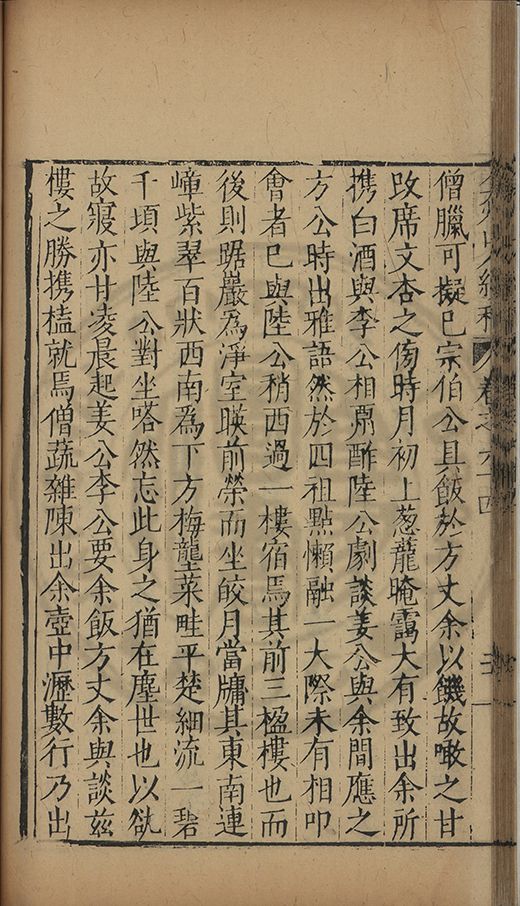 僧臘可擬巳宗伯公具飯於方丈余以饑故噉之甘
改席文杏之傍時月初上葱蘢晻靄大有致出余所
携白酒與李公相鬻酢陸公劇談姜公與余間應之
方公時出雅語然於四祖點懶融一大際未有相叩
會者巳與陸公稍西過一樓宿焉其前三楹樓也而
後則踞巖為淨室暎前榮而坐皎月當牗其東南連
嶂紫翠百狀西南為下方梅壟菜畦平楚細流一碧
千頃與陸公對坐嗒然忘此身之猶在塵世也以欲
故寢亦甘凌晨起姜公李公要余飯方丈余與談茲
樓之勝携榼就焉僧蔬雜陳出余壺中瀝數行乃出